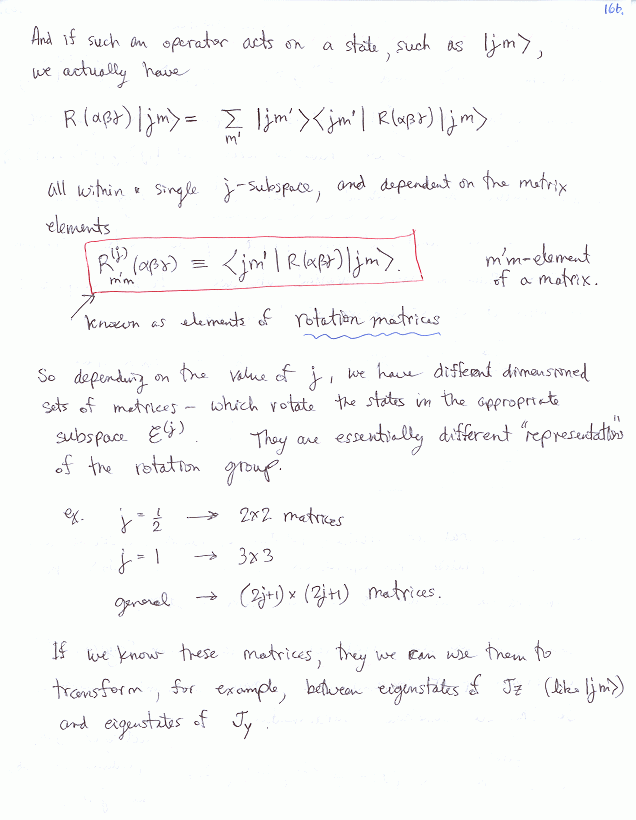 166.
And if such an operator acts on a state, such as |jm>,
we actually have
R(αβγ)|jm> = Σ |jm'><jm'| R(αβγ)|jm>
m'
all within a single j-subspace, and dependent on the matrix
elements
R^{(j)}_{m'm}(αβγ) ≡ <jm'|R(αβγ)|jm>.
m'm-element
of a matrix.
known as elements of rotation matrices
So depending on the value of j, we have different dimensioned
sets of matrices – which rotate the states in the appropriate
subspace Ɛ^{(j)}. They are essentially different "representations"
of the rotation group.
ex. j = 1/2 → 2x2 matrices
j = 1 → 3x3
general → (2j+1) x (2j+1) matrices.
If we know these matrices, they we can use them to
transform, for example, between eigenstates of Jz (like |jm>)
and eigenstates of Jy.